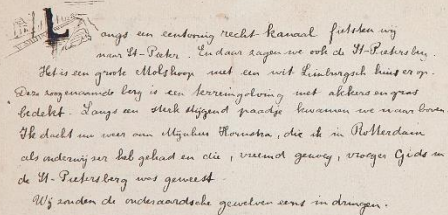 Langs een eentonig recht-kanaal fietsten wij
naar St-Pieter. En daar zagen we ook de St-Pietersberg.
Het is een grote Molshoop met een wit Limburgsch huis er op.
Deze zogenaamde berg is een terreingolving met akkers en gras
bedekt. Langs een sterk stijgend paadje kwamen we naar boven.
Ik dacht nu weer aan Mijnheer Hoornstra, die ik in Rotterdam
als onderwijzer heb gehad en die, vreemd genoeg, vroeger Gids in
de St-Pietersberg was geweest.
Wij zouden de onderaardsche gewelven eens in dringen.